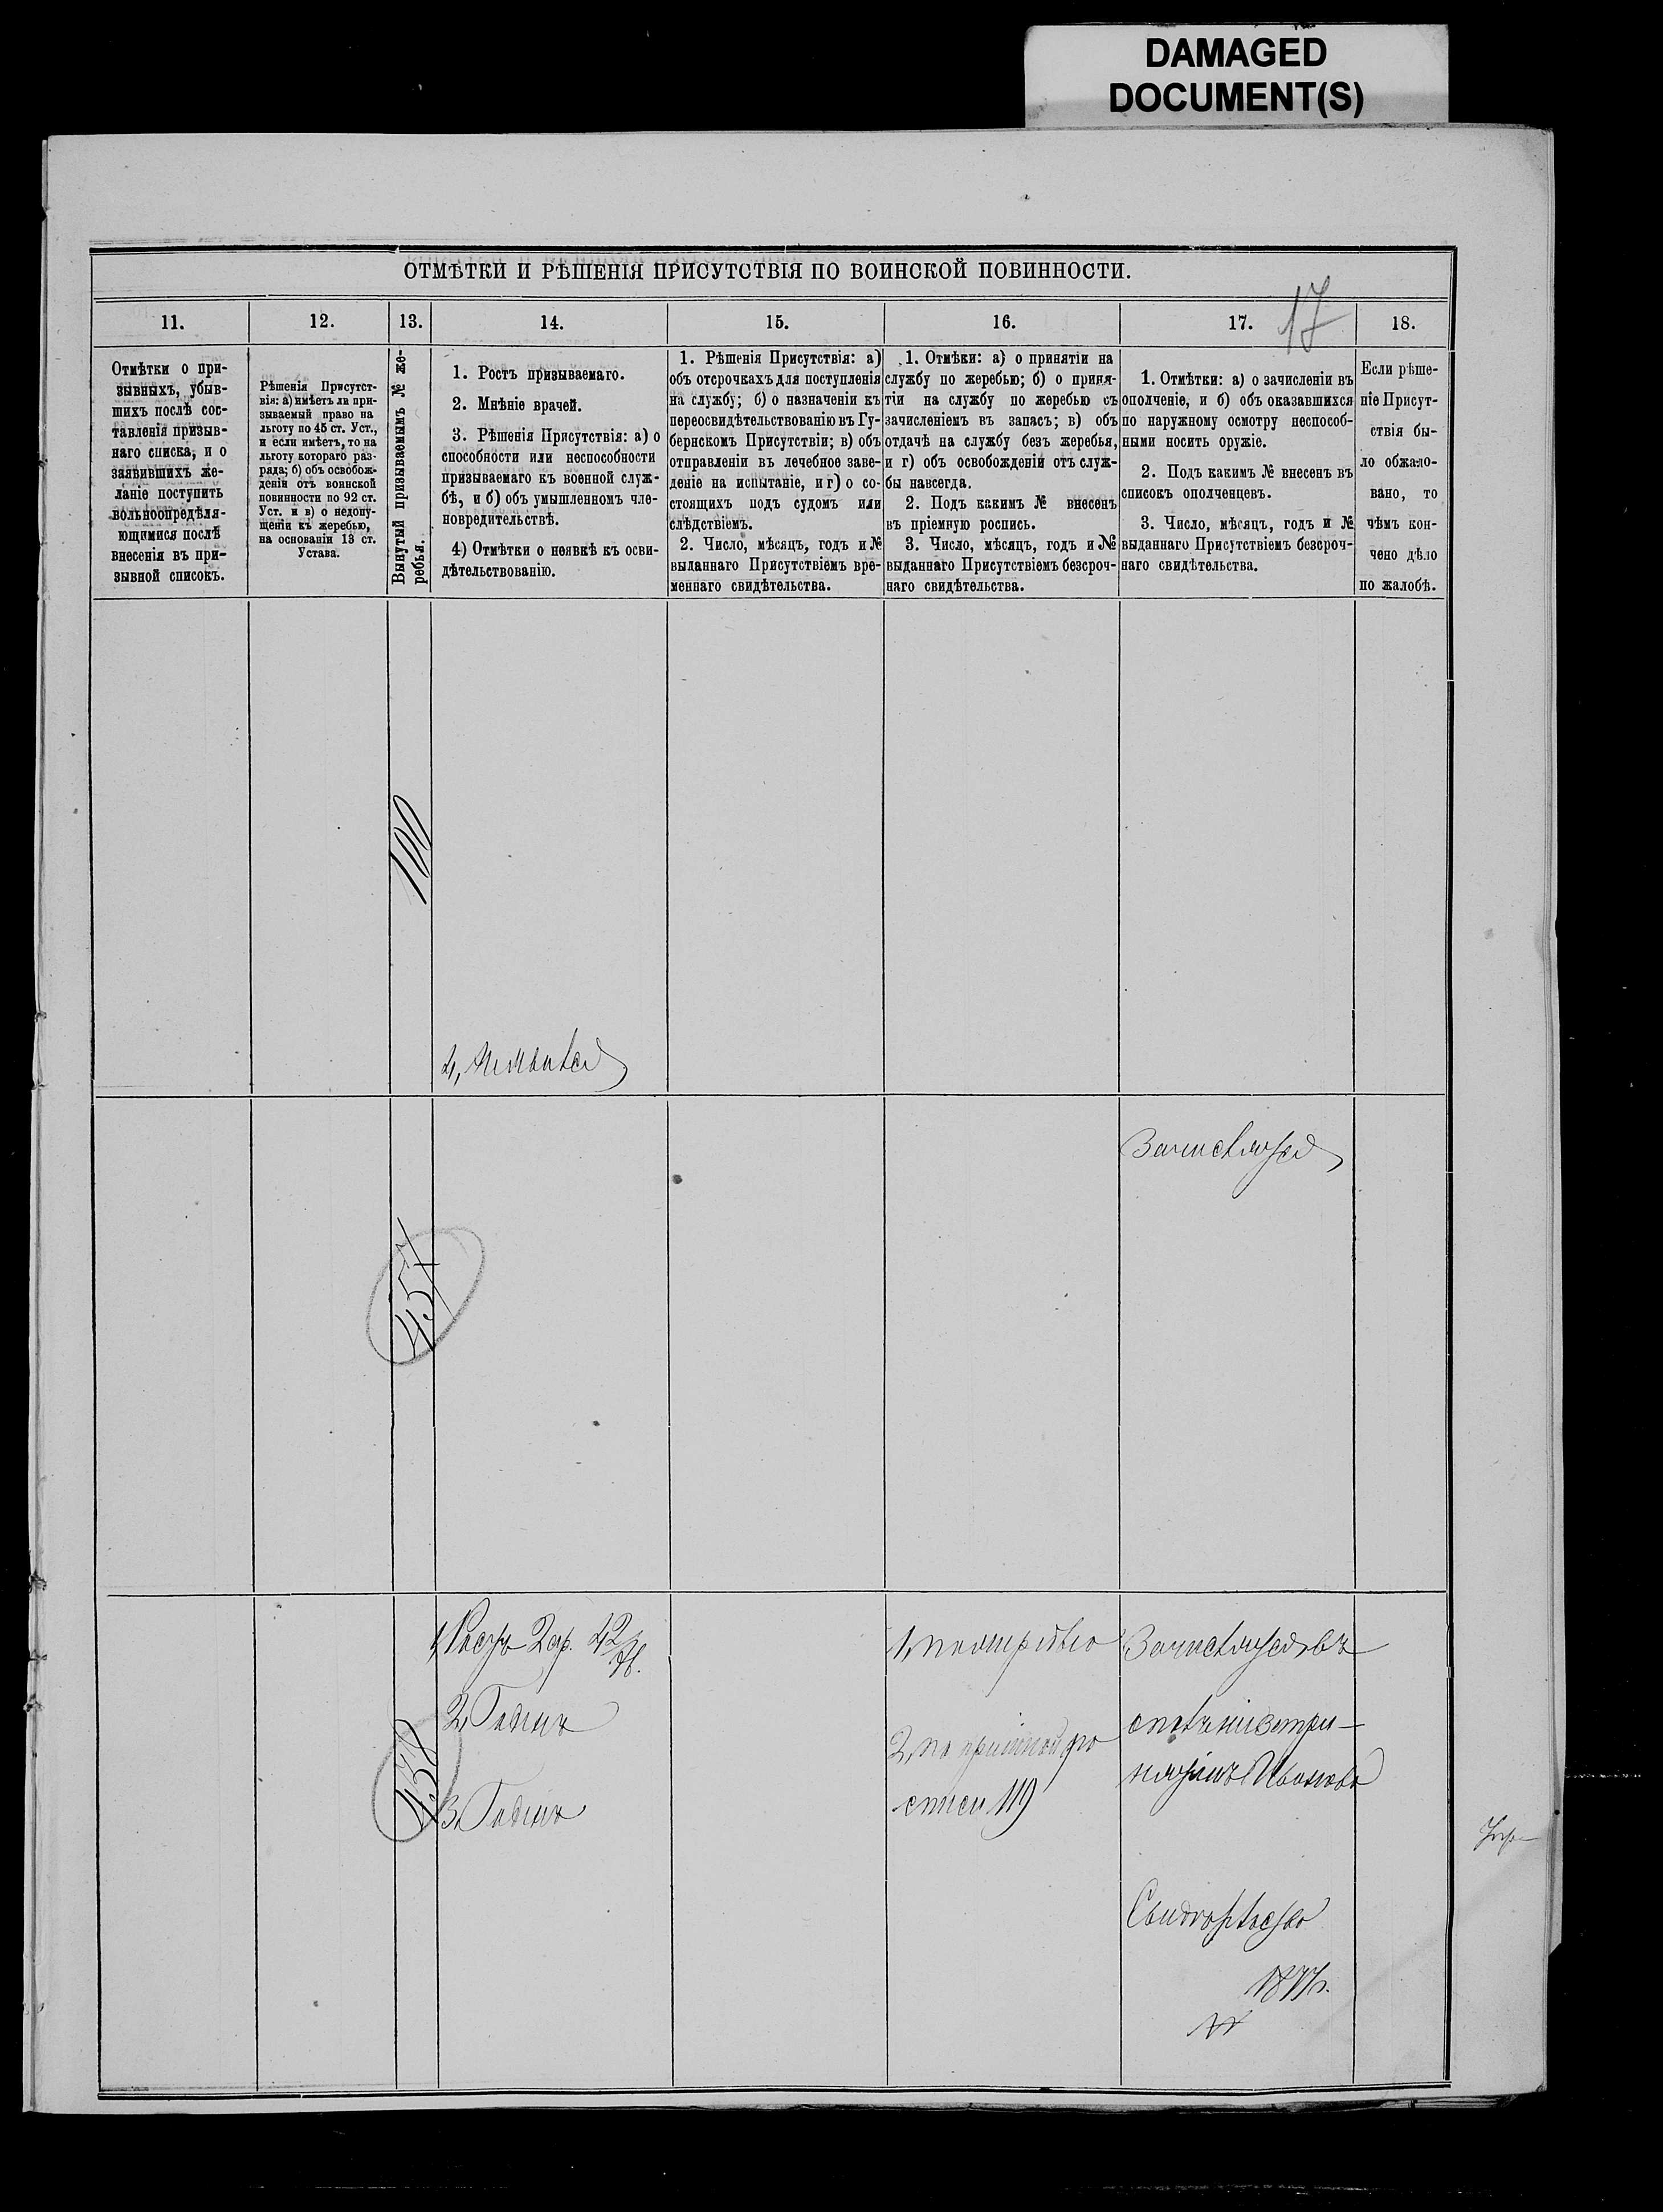 DAMAGED
DOCUMENT(S)
ОТМѢТКИ И РѢШЕНІЯ ПРИСУТСТВІЯ ПО ВОИНСКОЙ ПОВИННОСТИ.
17
11.
12.
13.
14.
15.
16.
17.
18.
Отмѣтки о при-
зывныхъ, убыв-
шихъ послѣ сос-
тавленія призыв-
наго списка, и о
заявившихъ же-
ланіе поступить
вольноопредѣля-
ющимися послѣ
внесенія въ при-
зывной списокъ.
Рѣшенія Присутст-
вія: а) имѣетъ ли при-
зываемый право на
льготу по 45 ст. Уст.,
и если имѣетъ, то на
льготу котораго раз-
ряда; б) объ освобож-
деніи отъ воинской
повинности по 92 ст.
Уст. и в) о недопу-
щеніи къ жеребью,
на основаніи 13 ст.
Устава.
Вынутый призываемымъ № же-
ребья.
1. Ростъ призываемаго.
2. Мнѣніе врачей.
3. Рѣшенія Присутствія: а) о
способности или неспособности
призываемаго къ военной служ-
бѣ, и б) объ умышленномъ чле-
новредительствѣ.
4) Отмѣтки о неявкѣ къ осви-
дѣтельствованію.
1. Рѣшенія Присутствія: а)
объ отсрочкахъ для поступленія
на службу; б) о назначеніи къ
переосвидѣтельствованію въ Гу-
бернскомъ Присутствіи; в) объ
отправленіи въ лечебное заве-
деніе на испытаніе, и г) о со-
стоящихъ подъ судомъ или
слѣдствіемъ.
2. Число, мѣсяцъ, годъ и №
выданнаго Присутствіемъ вре-
меннаго свидѣтельства.
1. Отмѣки: а) о принятіи на
службу по жеребью; б) о приня-
тіи на службу по жеребью съ
зачисленіемъ въ запасъ; в) объ
отдачѣ на службу безъ жеребья,
и г) объ освобожденіи отъ служ-
бы навсегда.
2. Подъ какимъ № внесенъ
въ пріемную роспись.
3. Число, мѣсяцъ, годъ и №
выданнаго Присутствіемъ безсроч-
наго свидѣтельства.
1. Отмѣтки: а) о зачисленіи въ
ополченіе, и б) объ оказавшихся
по наружному осмотру неспособ-
ными носить оружіе.
2. Подъ какимъ № внесенъ въ
списокъ ополченцевъ.
3. Число, мѣсяцъ, годъ и №
выданнаго Присутствіемъ безсроч-
наго свидѣтельства.
Если рѣше-
ніе Присут-
ствія бы-
ло обжало-
вано, то
чѣмъ кон-
чено дѣло
по жалобѣ.
100
4, Неявился
457
Зачисляется
438
1, Ростъ 2 ар. 4 2/8 в.
2, Годенъ
3. Годенъ
2, по пріемной ро
списи 119
Зачисляется въ
Свидѣтельство
1877 г.
№